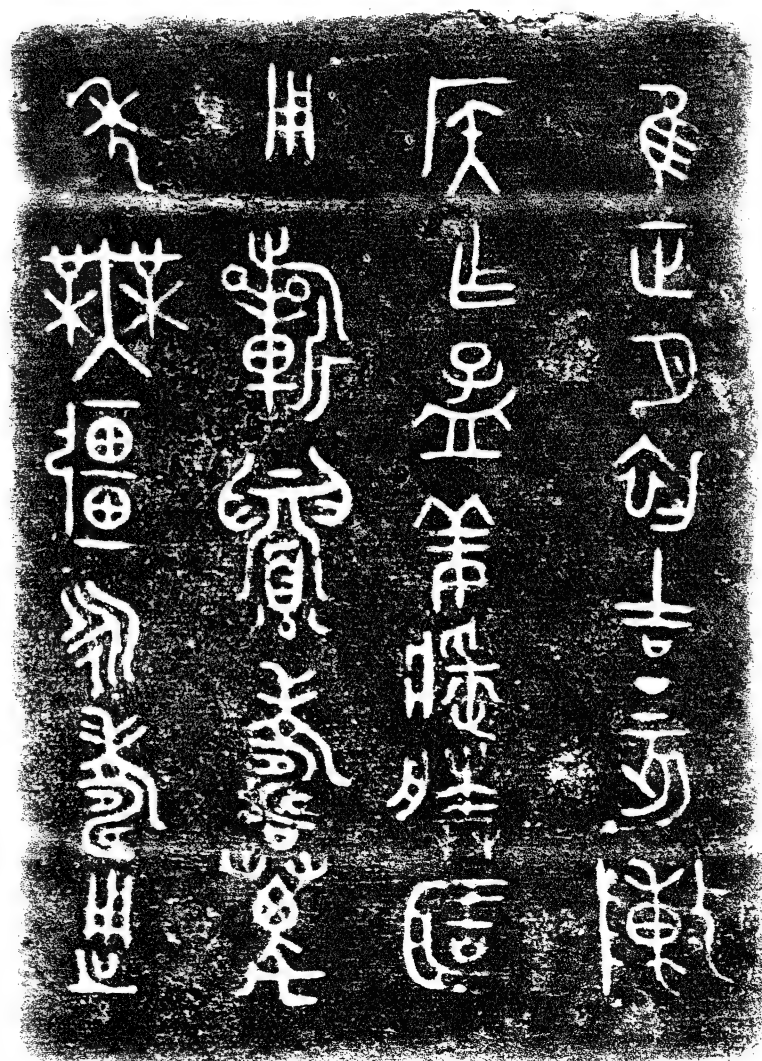 隹正月初吉丁亥敶
侯乍孟姜簠
用𣄨眉壽萬
年無彊永壽用之